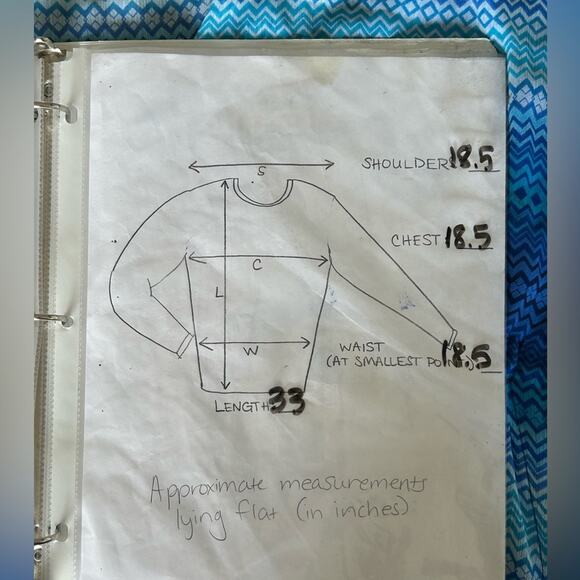 S
SHOULDER 18.5
CHEST 18.5
C
L
W
WAIST
(AT SMALLEST POINT) 18.5
LENGTH 33
Approximate measurements
lying flat (in inches)